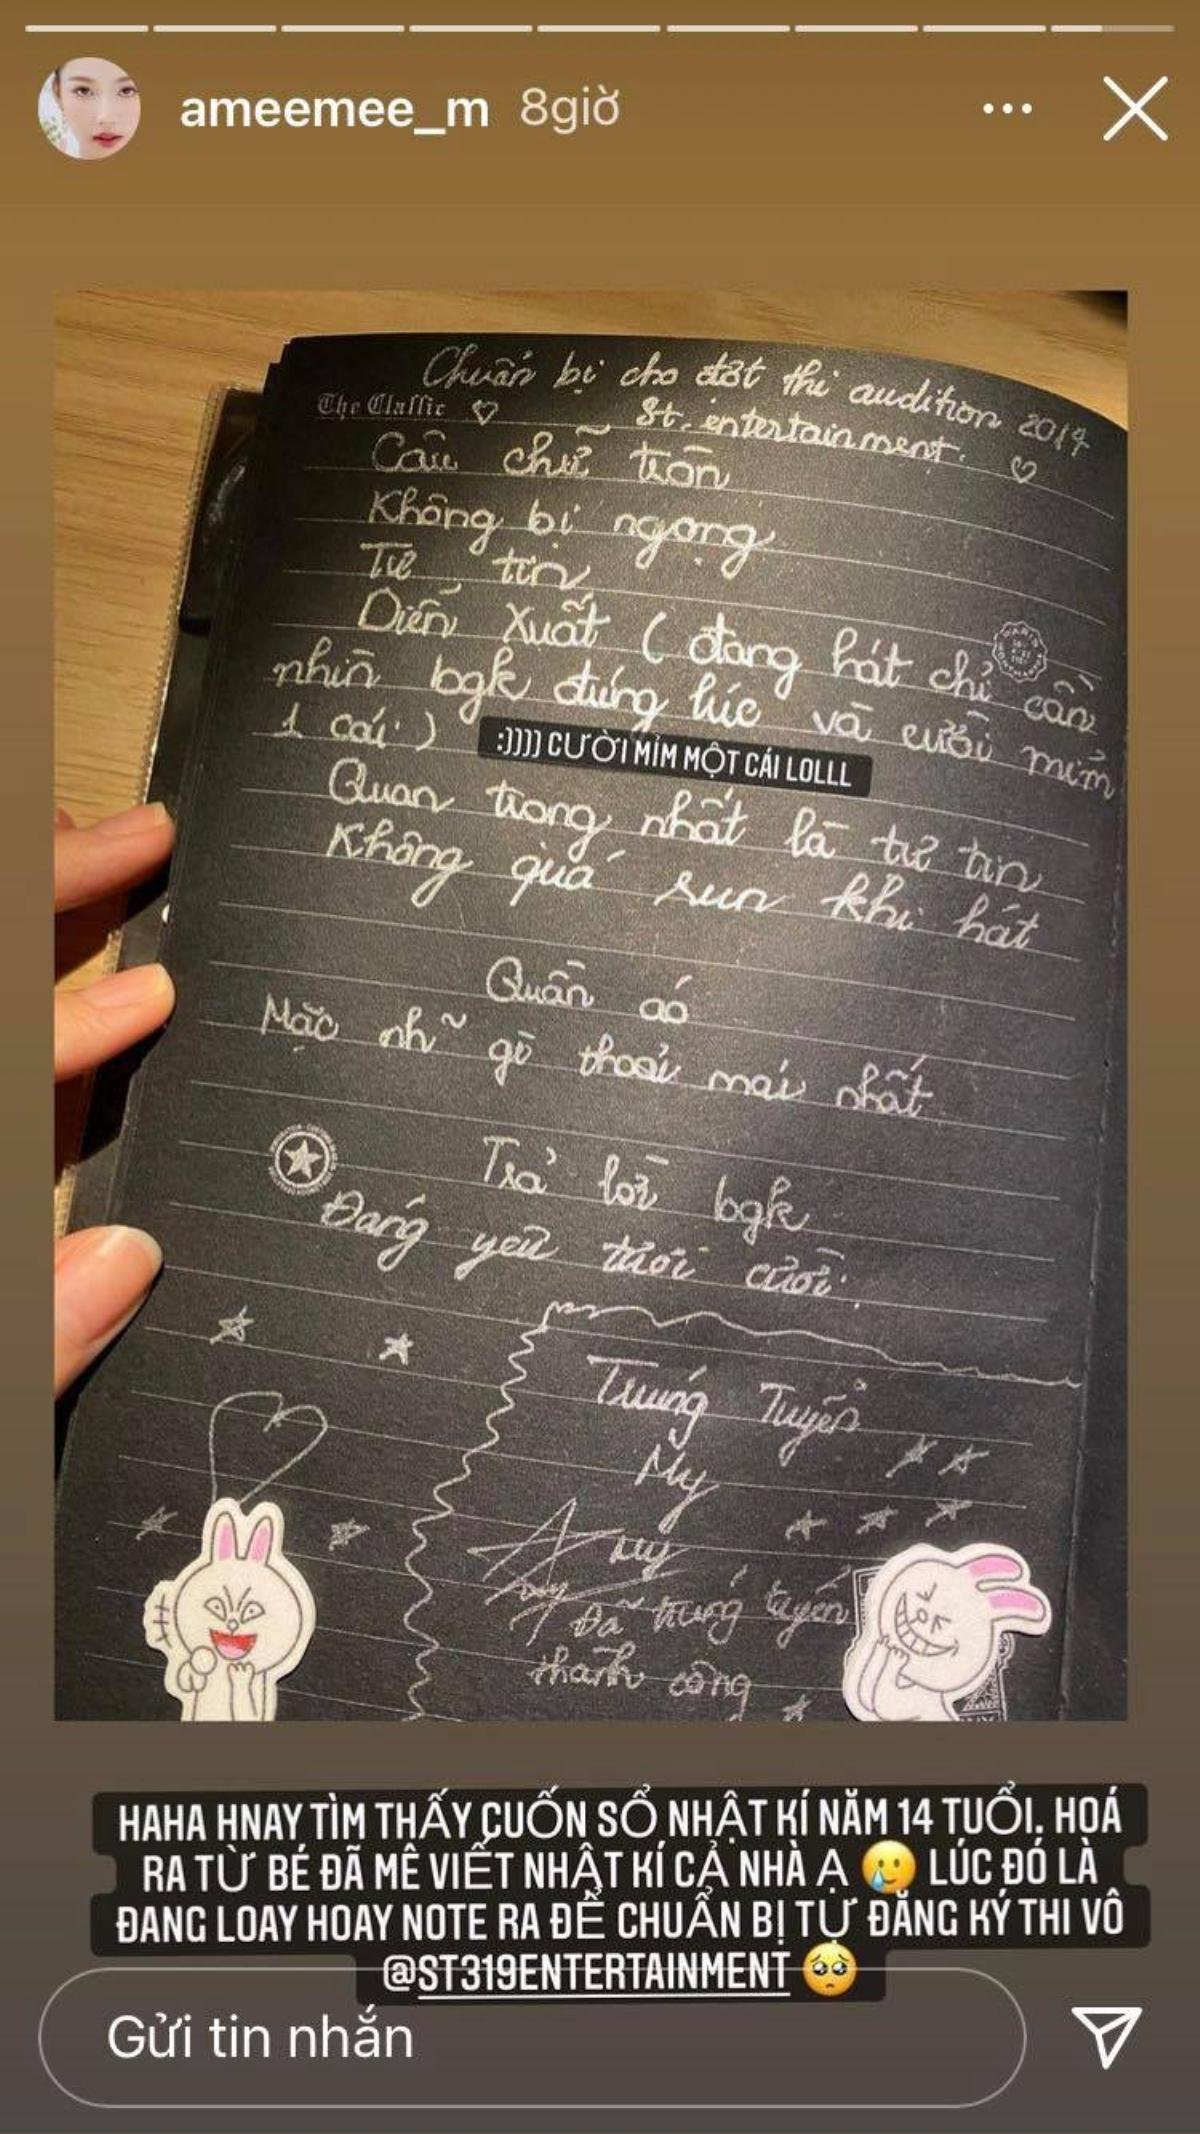 ameemee_m 8giờ
Chuẩn bị cho đợt thi audition 2014
The Classic St. entertainment.
Câu chữ tròn
Không bị ngọng
Tự tin
Diễn xuất ( đang hát chỉ cần
nhìn bgk đúng lúc và cười mỉm
1 cái )
:)))) CƯỜI MỈM MỘT CÁI LOLLL
Quan trọng nhất là tự tin
Không quá run khi hát
Quần áo
Mặc nh~ gì thoải mái nhất
Trả lời bgk
Đáng yêu tươi cười.
Trúng Tuyển
My
My
Đã trúng tuyển
thành công
HAHA HNAY TÌM THẤY CUỐN SỔ NHẬT KÍ NĂM 14 TUỔI. HOÁ
RA TỪ BÉ ĐÃ MÊ VIẾT NHẬT KÍ CẢ NHÀ Ạ 🥲 LÚC ĐÓ LÀ
ĐANG LOAY HOAY NOTE RA ĐỂ CHUẨN BỊ TỰ ĐĂNG KÝ THI VÔ
@ST319ENTERTAINMENT 🥺
Gửi tin nhắn